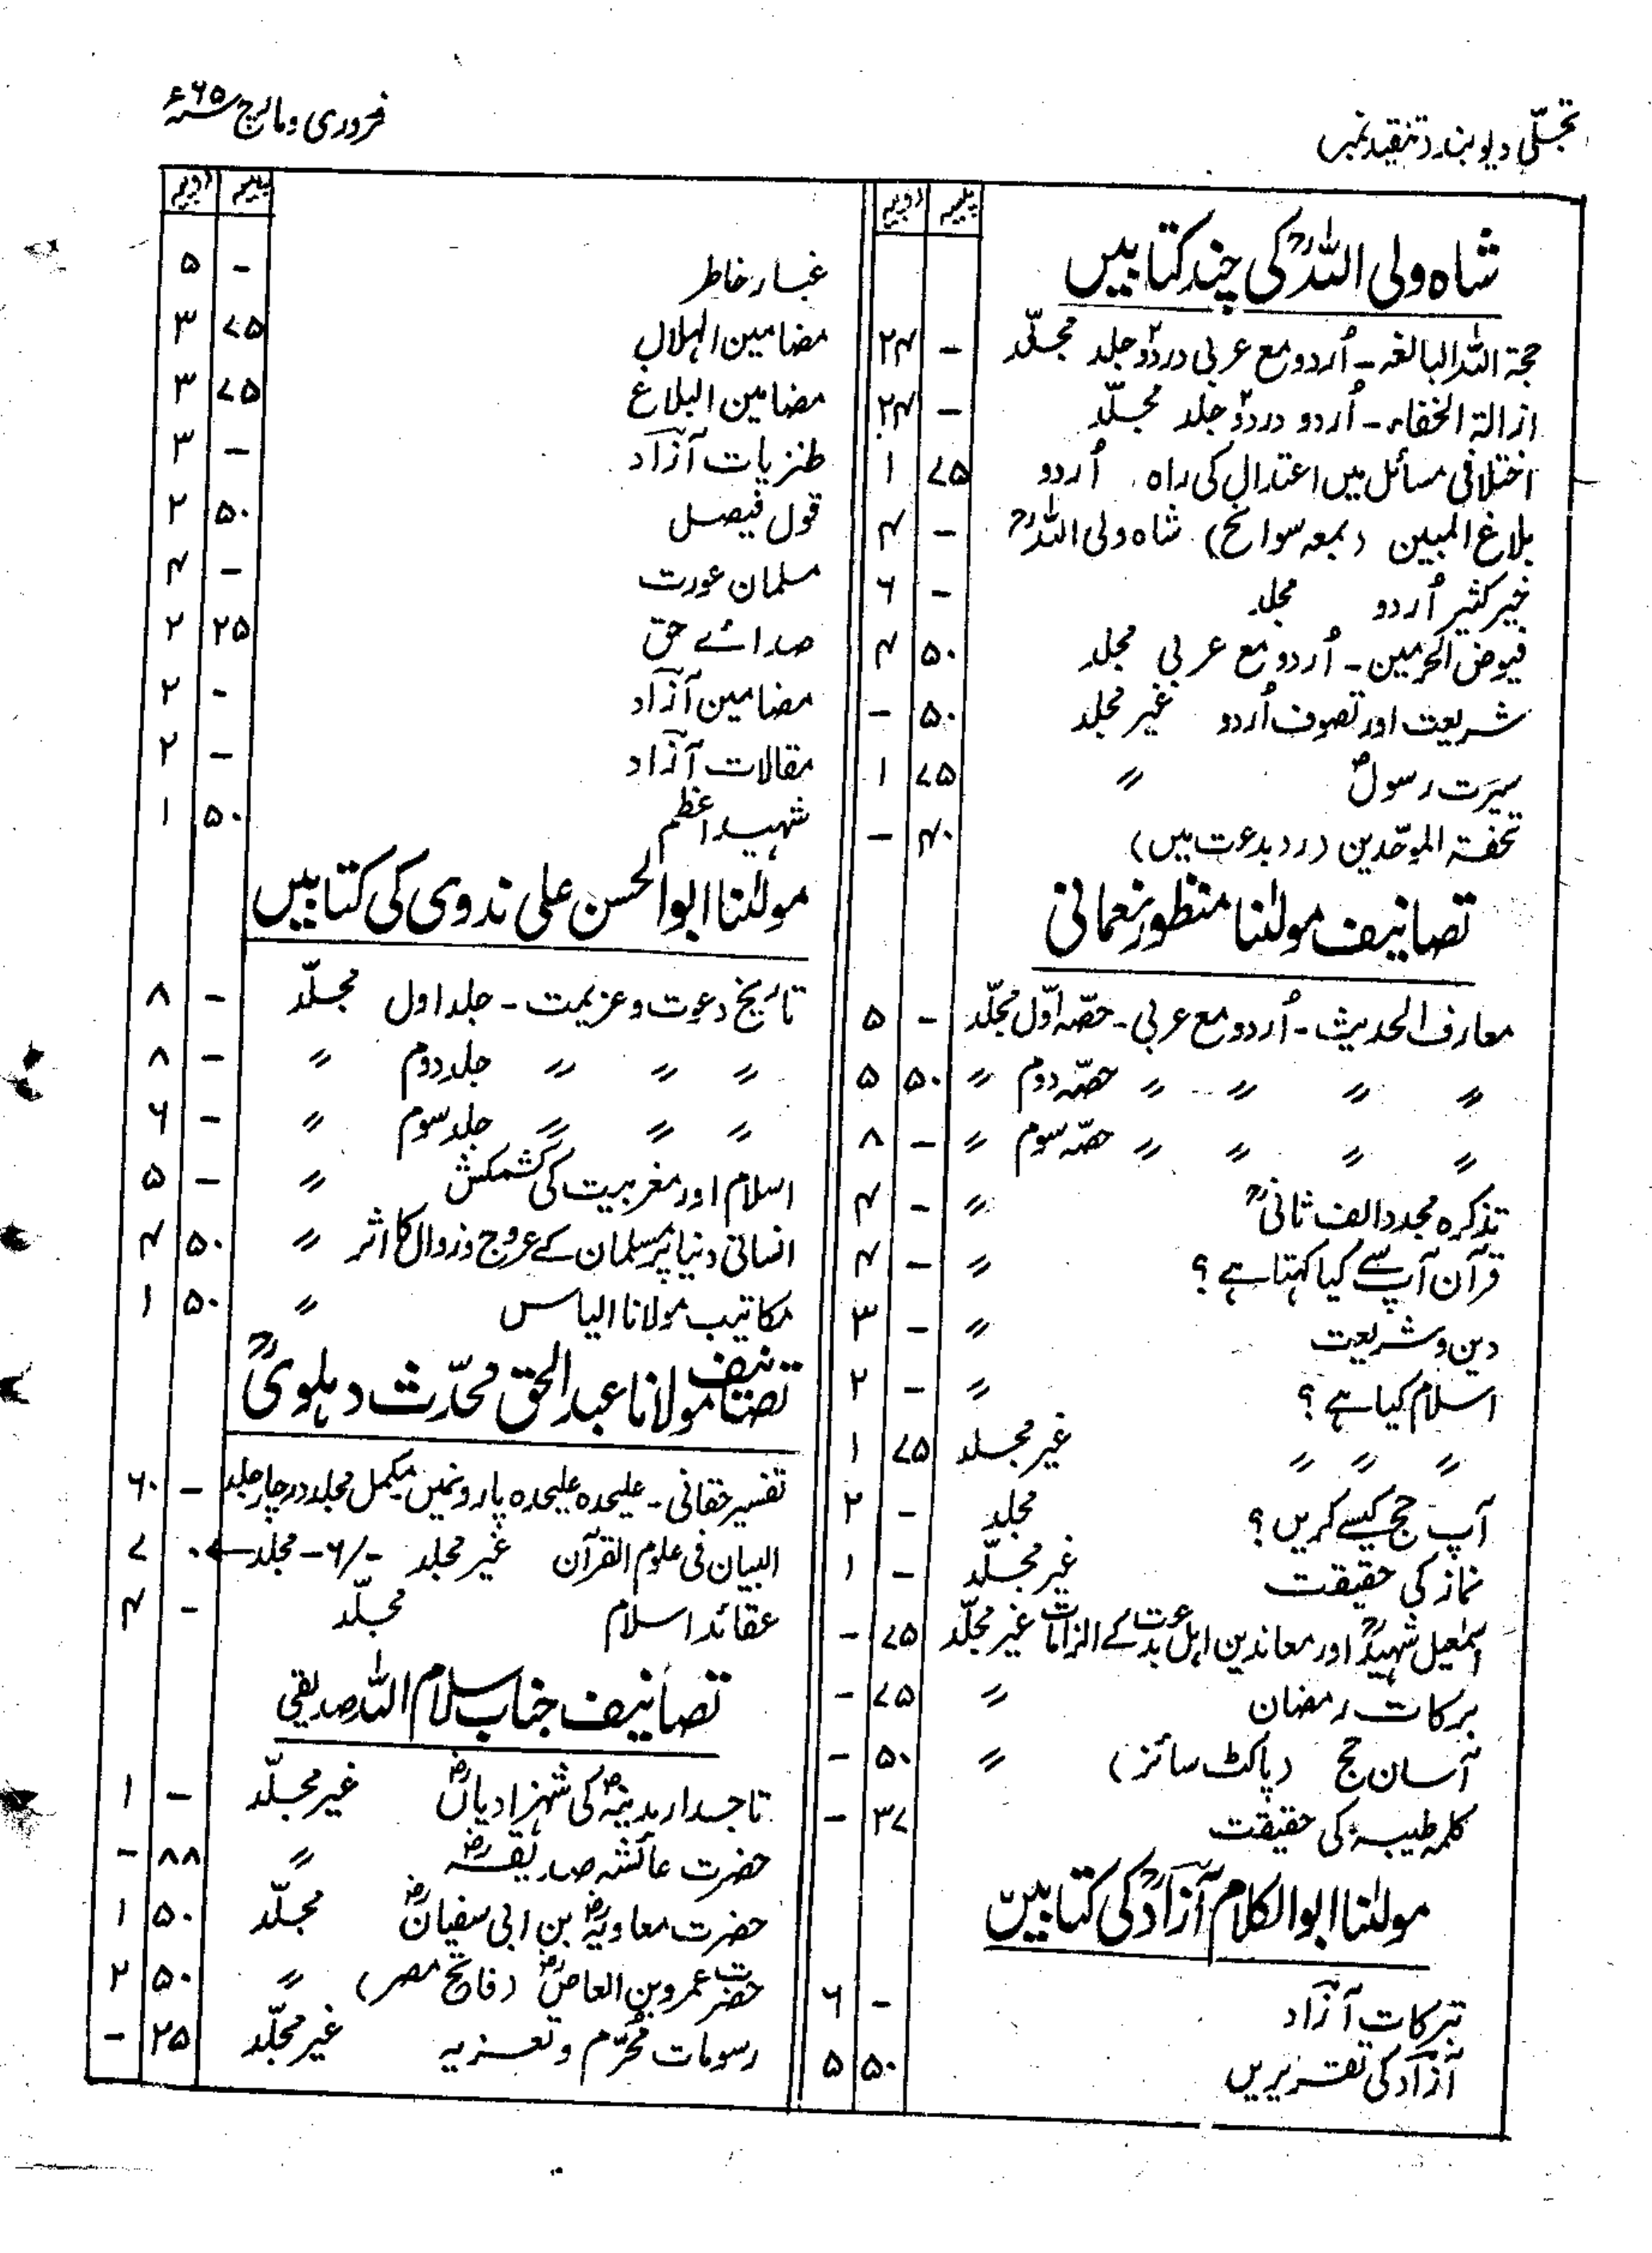 تجلّی دیوبند (تنقید نمبر)
فروری و مارچ ۶۵ء
پیسہ روپیہ
شاہ ولی اللہؒ کی چند کتابیں
حجۃ اللہ البالغہ - اُردو مع عربی در دو ۲ جلد مجلّد - ۲۴
ازالۃ الخفاء - اُردو در دو ۲ جلد مجلّد - ۲۴
اختلافی مسائل میں اعتدال کی راہ اُردو ۷۵ ۱
بلاغ المبین (بمعہ سوانح) شاہ ولی اللہؒ - ۴
خیر کثیر اُردو مجلد - ۶
فیوض الحرمین - اُردو مع عربی مجلد ۵۰ ۴
شریعت اور تصوف اُردو غیر مجلد ۵۰ -
سیرت رسولؐ 〃 ۷۵ ۱
تحفۃ الموحّدین (رد بدعت میں) ۴۰ -
تصانیف مولٰنا منظور نعمانی
معارف الحدیث - اُردو مع عربی - حصّہ اوّل مجلّد - ۵
〃 〃 〃 〃 حصّہ دوم 〃 ۵۰ ۵
〃 〃 〃 〃 حصّہ سوم 〃 - ۸
تذکرہ مجدد الف ثانیؒ 〃 - ۴
قرآن آپ سے کیا کہتا ہے ؟ 〃 - ۴
دین و شریعت 〃 - ۳
اسلام کیا ہے ؟ 〃 - ۲
〃 〃 〃 غیر مجلد ۷۵ ۱
آپ حج کیسے کریں ؟ مجلد - ۲
نماز کی حقیقت غیر مجلّد - ۱
اسمٰعیل شہیدؒ اور معاندین اہل بدعت کے الزامات غیر مجلّد ۷۵ -
برکات رمضان 〃 ۷۵ -
آسان حج (پاکٹ سائز) 〃 ۵۰ -
کلمہ طیبہ کی حقیقت ۳۷ -
مولٰنا ابوالکلام آزادؒ کی کتابیں
تبرکات آزاد - ۶
آزاد کی تقریریں ۵۰ ۵
پیسہ روپیہ
غبار خاطر - ۵
مضامین الہلال ۷۵ ۳
مضامین البلاغ ۷۵ ۳
طنزیات آزاد - ۳
قول فیصل ۵۰ ۲
مسلمان عورت - ۴
صدائے حق ۲۵ ۲
مضامین آزاد - ۲
مقالات آزاد - ۲
شہید اعظم ۵۰ ۱
مولٰنا ابوالحسن علی ندوی کی کتابیں
تاریخ دعوت و عزیمت - جلد اول مجلّد - ۸
〃 〃 〃 جلد دوم 〃 - ۸
〃 〃 〃 جلد سوم 〃 - ۶
اسلام اور مغربیت کی کشمکش 〃 - ۵
انسانی دنیا پر مسلمان کے عروج و زوال کا اثر 〃 ۵۰ ۴
مکاتیب مولانا الیاس 〃 ۵۰ ۱
تصانیف مولانا عبدالحق محدّث دہلویؒ
تفسیر حقانی - علیحدہ علیحدہ پاروں میں مکمل مجلد در چار جلد - ۶۰
البیان فی علوم القرآن غیر مجلد -/۶ - مجلد ← ۰ ۷
عقائد اسلام مجلّد - ۴
تصانیف جناب سلام اللہ صدیقی
تاجدار مدینہؐ کی شہزادیاںؓ غیر مجلّد - ۱
حضرت عائشہ صدیقہؓ 〃 ۸۸ -
حضرت معاویہؓ بن ابی سفیانؓ مجلّد ۵۰ ۱
حضرت عمرو بن العاصؓ (فاتح مصر) 〃 ۵۰ ۲
رسومات محرّم و تعزیہ غیر مجلّد ۲۵ -